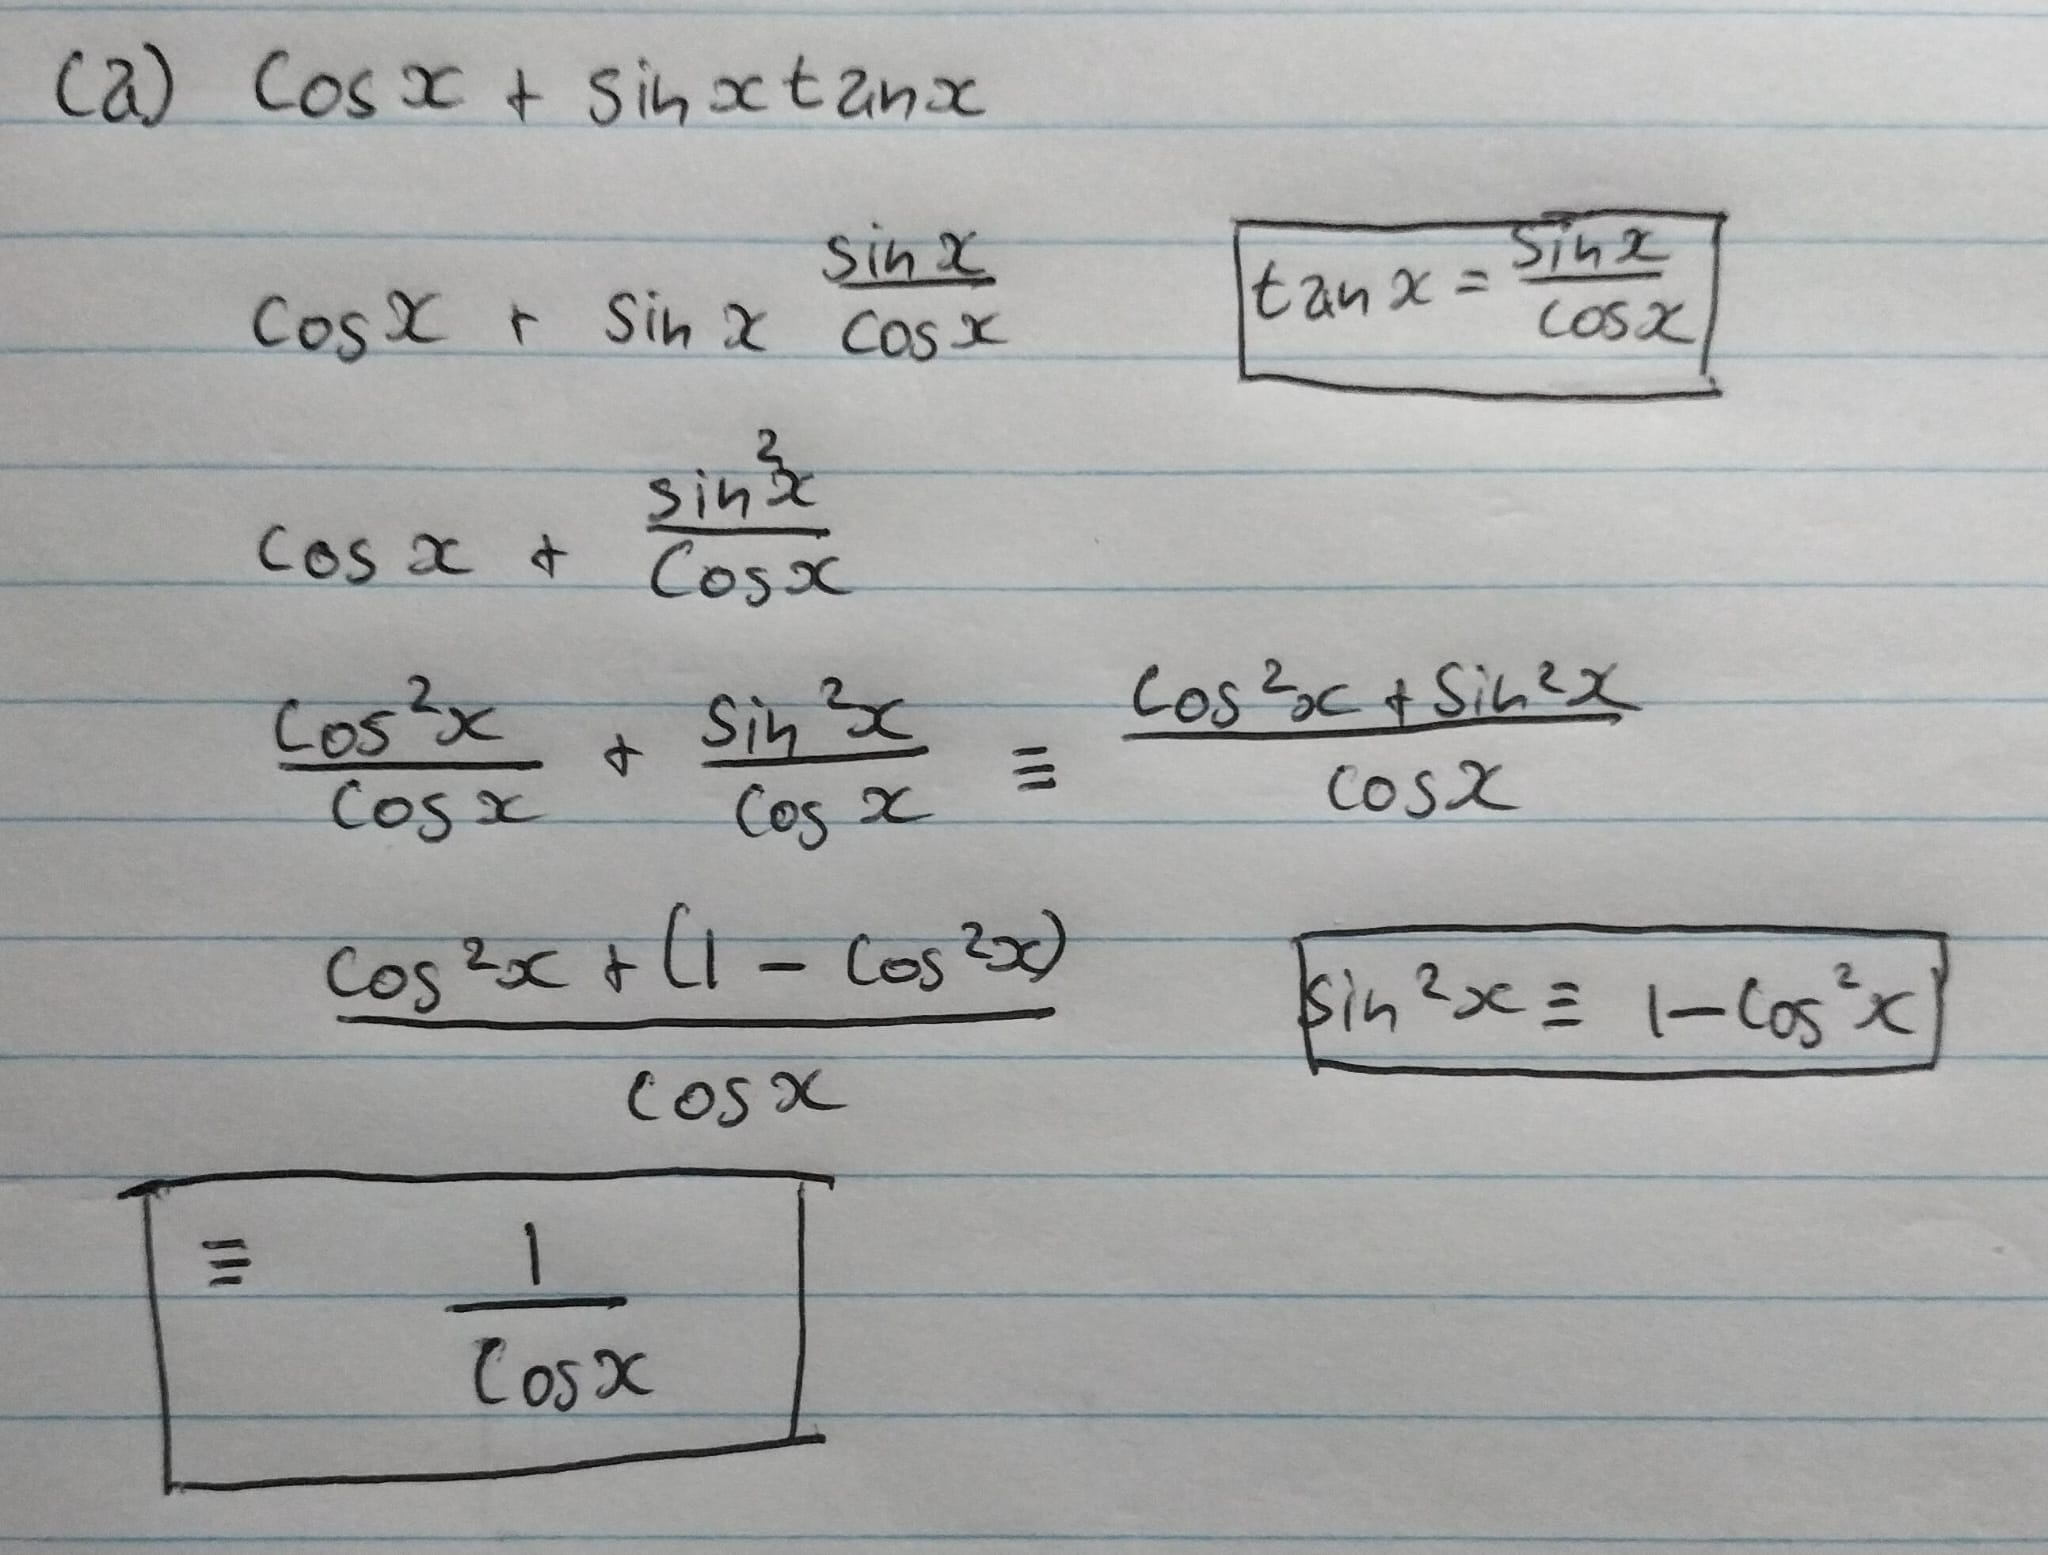 (a) Cos x + sin x tan x
Cos x + sin x sin x / cos x
tan x = sin x / cos x
Cos x + sin²x / Cos x
Cos²x / Cos x + Sin²x / Cos x ≡ Cos²x + Sin²x / cos x
Cos²x + (1 - Cos²x) / cos x
Sin²x ≡ 1 - Cos²x
≡ 1 / Cos x